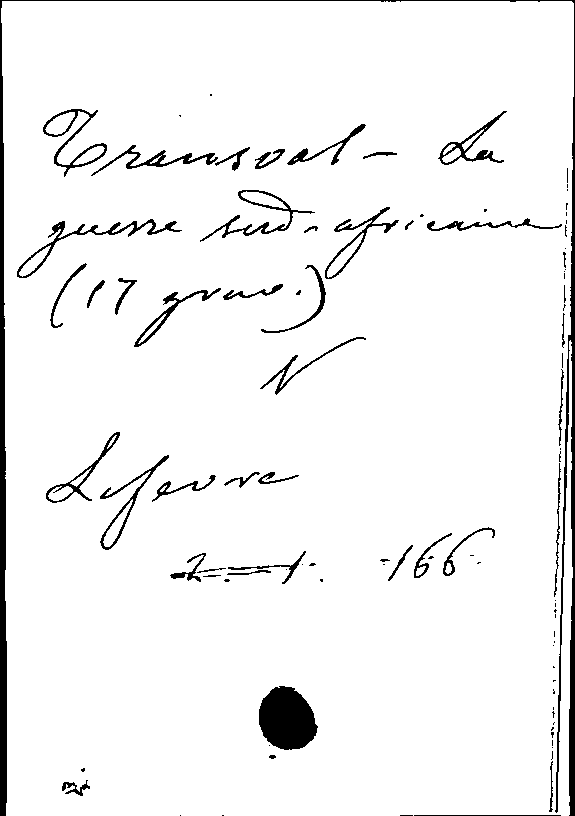 Transval - La
guerre sud-africaine
(17 grav.)
N
Lefevre
2 1. 166